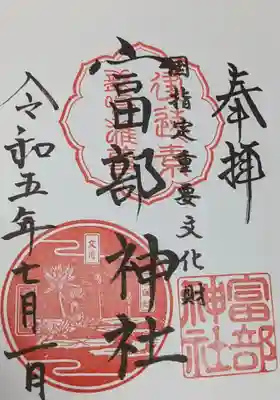 奉拝
国指定重要文化財
富部神社
令和五年七月一日
文月
富部
神社